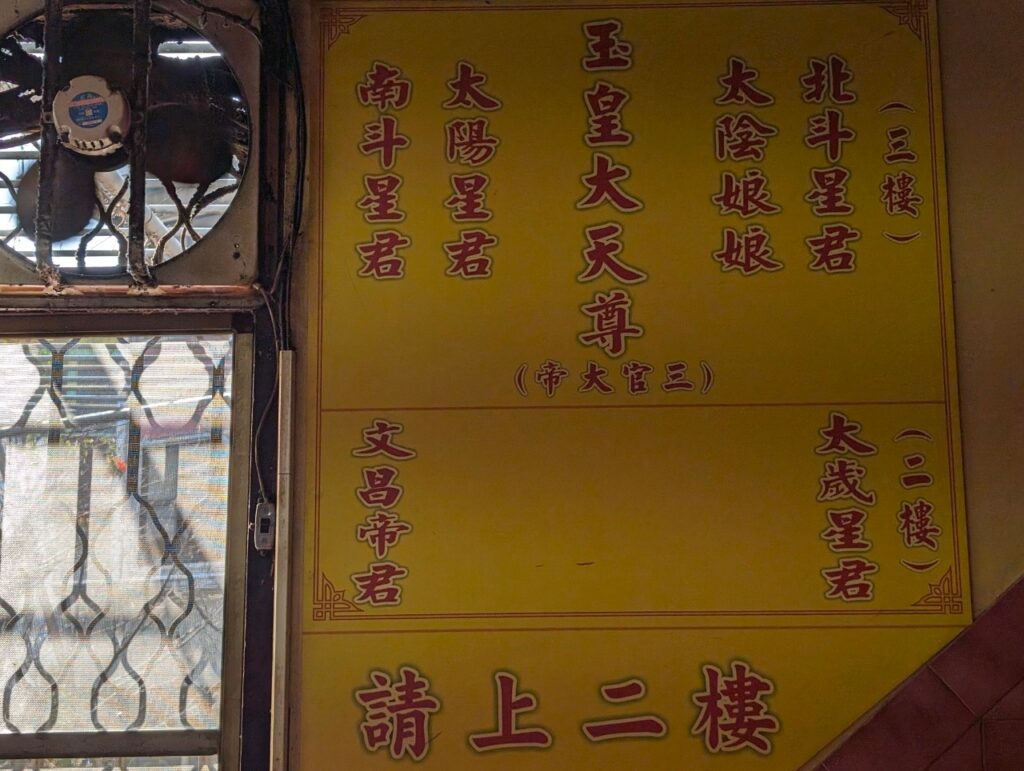 （三樓）
北斗星君
太陰娘娘
玉皇大天尊
（三官大帝）
太陽星君
南斗星君
（二樓）
太歲星君
文昌帝君
請上二樓